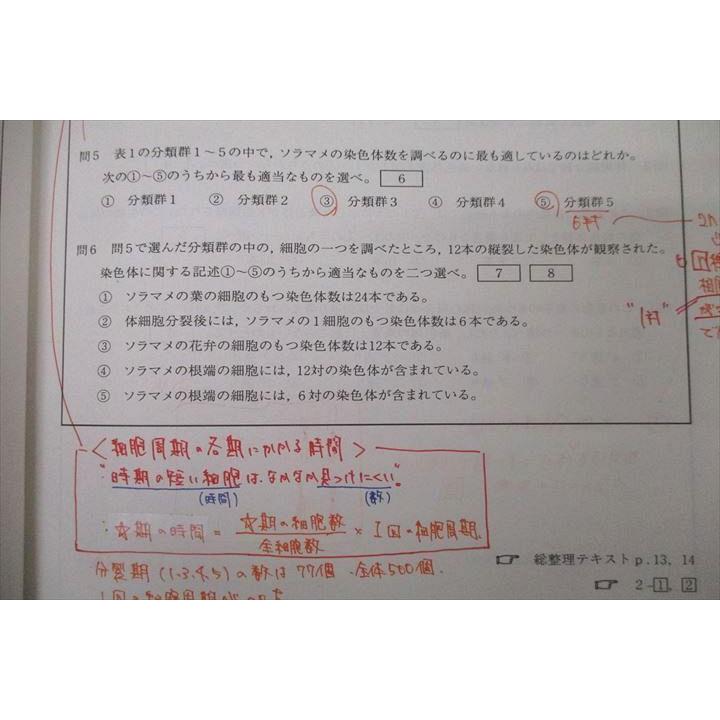 問5 表1の分類群1~5の中で,ソラマメの染色体数を調べるのに最も適しているのはどれか。
次の①~⑤のうちから最も適当なものを選べ。 6
① 分類群1 ② 分類群2 ③ 分類群3 ④ 分類群4 ⑤ 分類群5
6対
2n
問6 問5で選んだ分類群の中の,細胞の一つを調べたところ,12本の縦裂した染色体が観察された。
染色体に関する記述①~⑤のうちから適当なものを二つ選べ。 7 8
① ソラマメの葉の細胞のもつ染色体数は24本である。
② 体細胞分裂後には,ソラマメの1細胞のもつ染色体数は6本である。
"1対"
③ ソラマメの花弁の細胞のもつ染色体数は12本である。
④ ソラマメの根端の細胞には,12対の染色体が含まれている。
⑤ ソラマメの根端の細胞には,6対の染色体が含まれている。
<細胞周期の各期にかかる時間>
"時期の短い細胞は、なかなか見つけにくい"
(時間) (数)
☆期の時間 = ☆期の細胞数 / 全細胞数 × 1回の細胞周期.
分裂期(1.3.4.5)の数は77個. 全体500個.
総整理テキストp.13, 14
2-1, 2